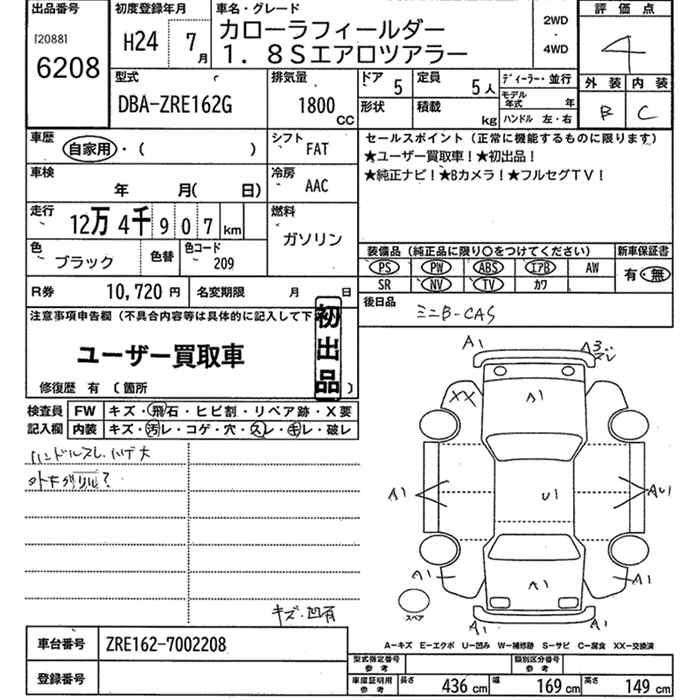 出品番号
[20881
6208
初度登録年月
H24 7月
車名・グレード
カローラフィールダー
1.8Sエアロツアラー
2WD
・
4WD
評価点
4
外装 内装
B C
型式
DBA-ZRE162G
排気量
1800
CC
ドア 5
形状
定員 5人
積載 kg
ディーラー・並行
モデル年式 年
ハンドル 左・右
車歴
自家用・( )
シフト
FAT
車検
年 月( 日)
冷房
AAC
走行
12万4千907km
燃料
ガソリン
色
ブラック
色替
色コード
209
セールスポイント(正常に機能するものに限ります)
★ユーザー買取車!★初出品!
★純正ナビ!★Bカメラ!★フルセグTV!
装備品(純正品に限り○をつけてください)
PS PW ABS エアB AW
SR NV TV カワ
新車保証書
有・無
R券 10,720円
名変期限 月 日
後日品
ミニB-CAS
注意事項申告欄(不具合内容等は具体的に記入して下
初出品
ユーザー買取車
修復歴 有 〔箇所 〕
検査員
記入欄
FW キズ・飛石・ヒビ割・リペア跡・X要
内装 キズ・汚レ・コゲ・穴・スレ・キレ・破レ
ハンドルスレ、ハゲ大
キズ・凹有
A1
A3
スレ
XX
A1
A1
U1
AU1
A1
A1
A1
A1
A1
スペア
A=キズ E=エクボ U=凹み W=補修跡 S=サビ C=腐食 XX=交換済
車台番号
ZRE162-7002208
登録番号
型式指定番号
参考
類別区分番号
参考
車庫証明用
参考
長さ 436cm
幅 169cm
高さ 149cm